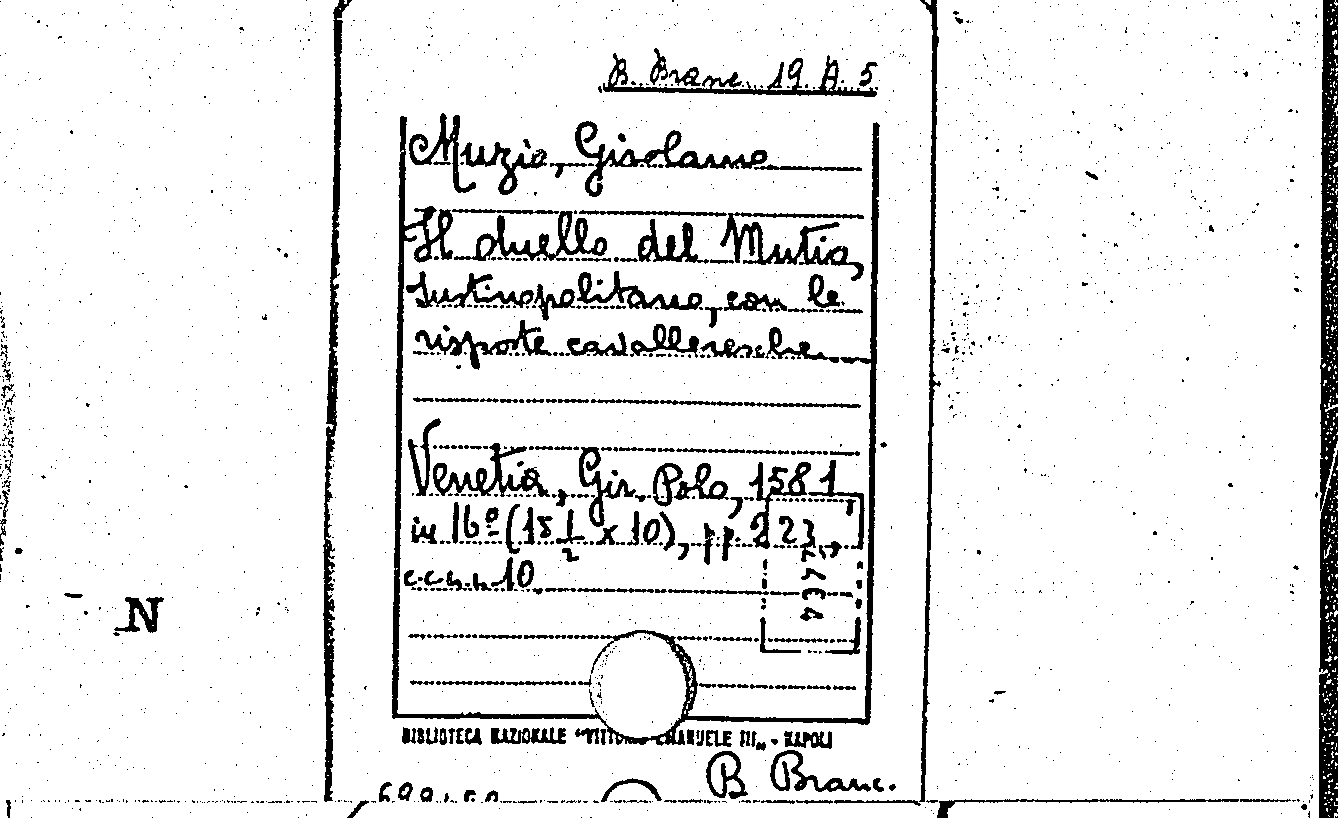 B. Branc. 19 A. 5
Muzio, Girolamo
Il duello del Mutio,
Iustinopolitano, con le
risposte cavalleresche.
Venetia, Gir. Polo, 1581,
in 16º (15 1/2 x 10), pp. 223,
c.c.n.n. 10
N
BIBLIOTECA NAZIONALE "VITTORIO EMANUELE III„ - NAPOLI
B Branc.